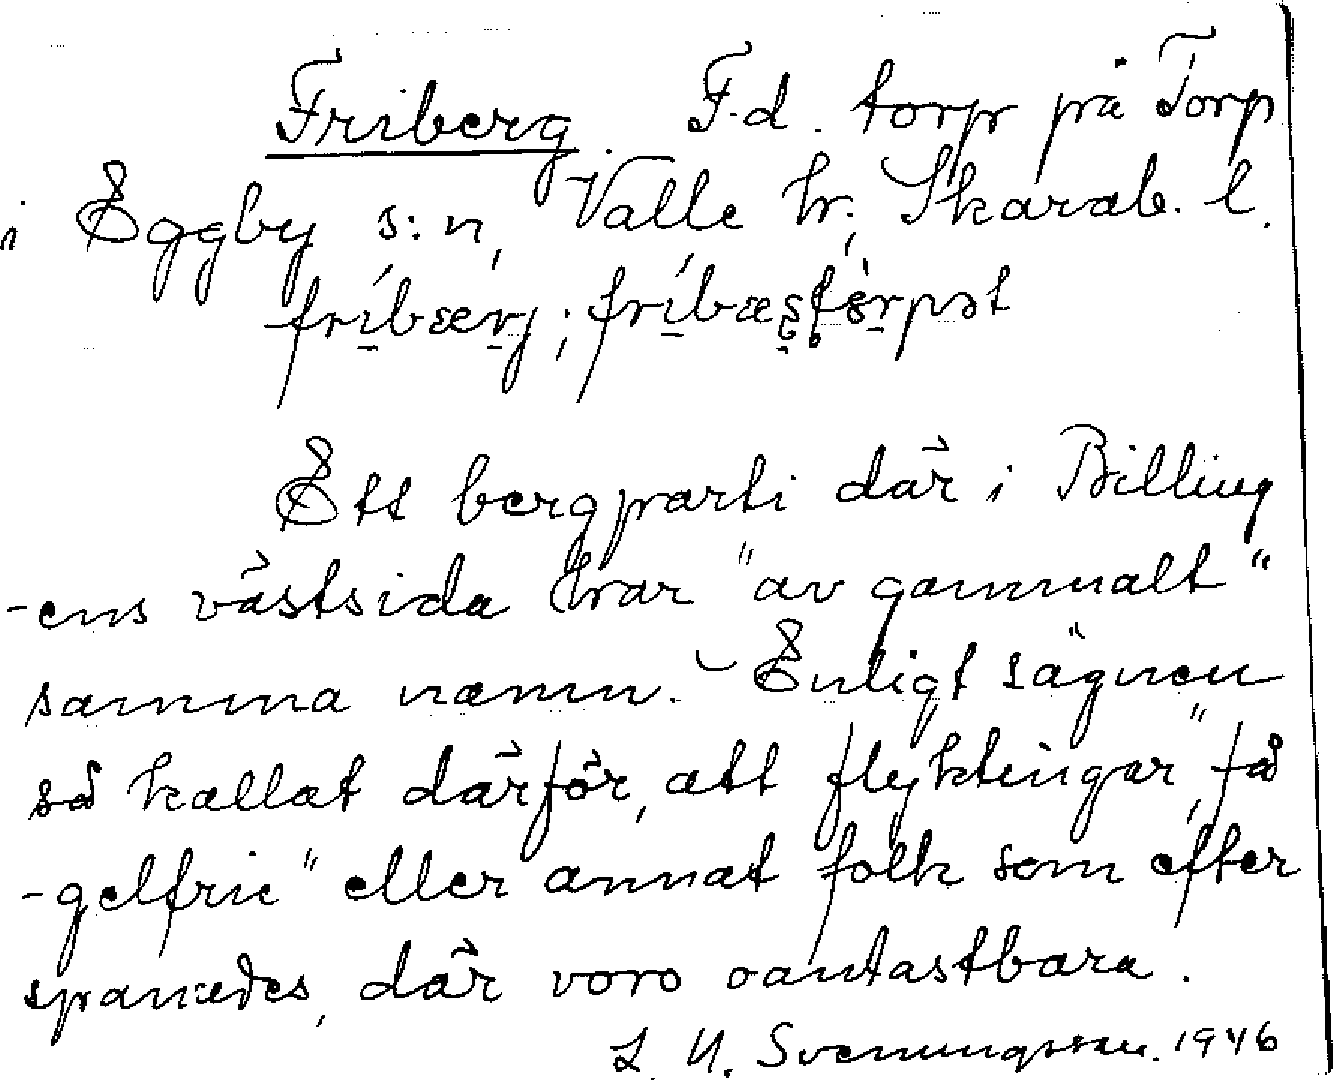 Friberg. F.d. torp på Torp
i Eggby s:n, Valle hr, Skarab. l.
Ett bergparti där i Billing
-ens västsida har "av gammalt"
samma namn. - Enligt sägnen
så kallat därför, att flyktingar, "få
-gelfrie" eller annat folk som efter
spanades, där voro oantastbara.
L. U. Svenungsson. 1946